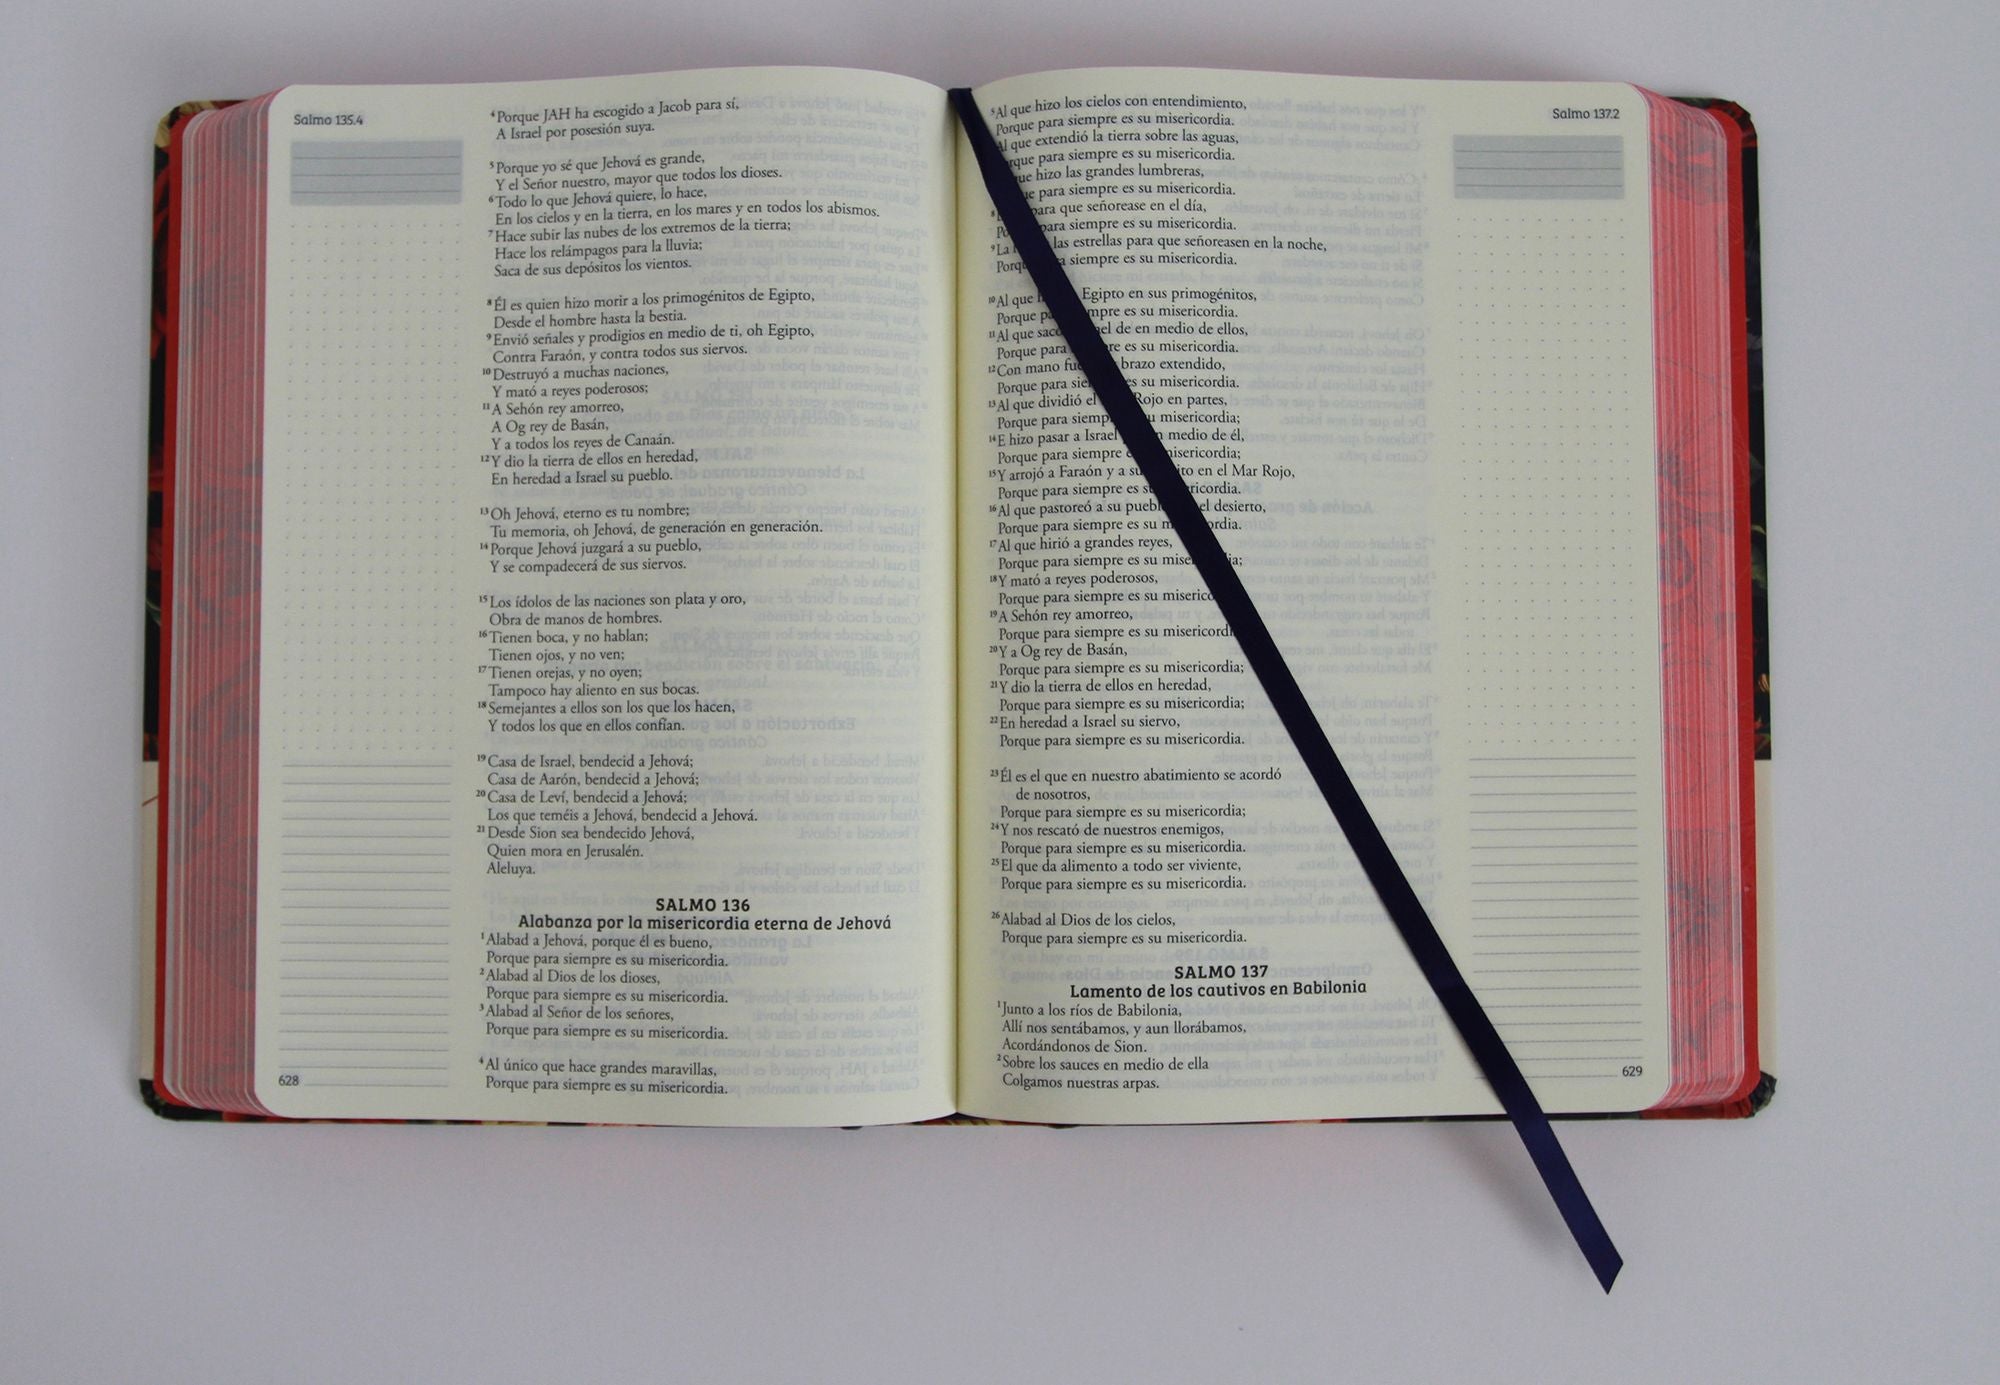 Salmo 135.4
⁴Porque JAH ha escogido a Jacob para sí,
A Israel por posesión suya.
⁵Porque yo sé que Jehová es grande,
Y el Señor nuestro, mayor que todos los dioses.
⁶Todo lo que Jehová quiere, lo hace,
En los cielos y en la tierra, en los mares y en todos los abismos.
⁷Hace subir las nubes de los extremos de la tierra;
Hace los relámpagos para la lluvia;
Saca de sus depósitos los vientos.
⁸Él es quien hizo morir a los primogénitos de Egipto,
Desde el hombre hasta la bestia.
⁹Envió señales y prodigios en medio de ti, oh Egipto,
Contra Faraón, y contra todos sus siervos.
¹⁰Destruyó a muchas naciones,
Y mató a reyes poderosos;
¹¹A Sehón rey amorreo,
A Og rey de Basán,
Y a todos los reyes de Canaán.
¹²Y dio la tierra de ellos en heredad,
En heredad a Israel su pueblo.
¹³Oh Jehová, eterno es tu nombre;
Tu memoria, oh Jehová, de generación en generación.
¹⁴Porque Jehová juzgará a su pueblo,
Y se compadecerá de sus siervos.
¹⁵Los ídolos de las naciones son plata y oro,
Obra de manos de hombres.
¹⁶Tienen boca, y no hablan;
Tienen ojos, y no ven;
¹⁷Tienen orejas, y no oyen;
Tampoco hay aliento en sus bocas.
¹⁸Semejantes a ellos son los que los hacen,
Y todos los que en ellos confían.
¹⁹Casa de Israel, bendecid a Jehová;
Casa de Aarón, bendecid a Jehová;
²⁰Casa de Leví, bendecid a Jehová;
Los que teméis a Jehová, bendecid a Jehová.
²¹Desde Sion sea bendecido Jehová,
Quien mora en Jerusalén.
Aleluya.
SALMO 136
Alabanza por la misericordia eterna de Jehová
¹Alabad a Jehová, porque él es bueno,
Porque para siempre es su misericordia.
²Alabad al Dios de los dioses,
Porque para siempre es su misericordia.
³Alabad al Señor de los señores,
Porque para siempre es su misericordia.
⁴Al único que hace grandes maravillas,
Porque para siempre es su misericordia.
628
Salmo 137.2
⁵Al que hizo los cielos con entendimiento,
Porque para siempre es su misericordia.
Al que extendió la tierra sobre las aguas,
Porque para siempre es su misericordia.
que hizo las grandes lumbreras,
para siempre es su misericordia.
⁸ para que señorease en el día,
Porque para siempre es su misericordia.
⁹La las estrellas para que señoreasen en la noche,
siempre es su misericordia.
¹⁰Al que Egipto en sus primogénitos,
Porque siempre es su misericordia.
¹¹Al que sacó de en medio de ellos,
Porque para es su misericordia.
¹²Con mano brazo extendido,
Porque para es su misericordia.
¹³Al que dividió el Rojo en partes,
Porque para siempre su misericordia;
¹⁴E hizo pasar a Israel medio de él,
Porque para siempre misericordia;
¹⁵Y arrojó a Faraón y a su en el Mar Rojo,
Porque para siempre es su misericordia.
¹⁶Al que pastoreó a su pueblo el desierto,
Porque para siempre es su misericordia.
¹⁷Al que hirió a grandes reyes,
Porque para siempre es su misericordia;
¹⁸Y mató a reyes poderosos,
Porque para siempre es su misericordia.
¹⁹A Sehón rey amorreo,
Porque para siempre es su misericordia;
²⁰Y a Og rey de Basán,
Porque para siempre es su misericordia;
²¹Y dio la tierra de ellos en heredad,
Porque para siempre es su misericordia;
²²En heredad a Israel su siervo,
Porque para siempre es su misericordia.
²³Él es el que en nuestro abatimiento se acordó
de nosotros,
Porque para siempre es su misericordia;
²⁴Y nos rescató de nuestros enemigos,
Porque para siempre es su misericordia.
²⁵El que da alimento a todo ser viviente,
Porque para siempre es su misericordia.
²⁶Alabad al Dios de los cielos,
Porque para siempre es su misericordia.
SALMO 137
Lamento de los cautivos en Babilonia
¹Junto a los ríos de Babilonia,
Allí nos sentábamos, y aun llorábamos,
Acordándonos de Sion.
²Sobre los sauces en medio de ella
Colgamos nuestras arpas.
629